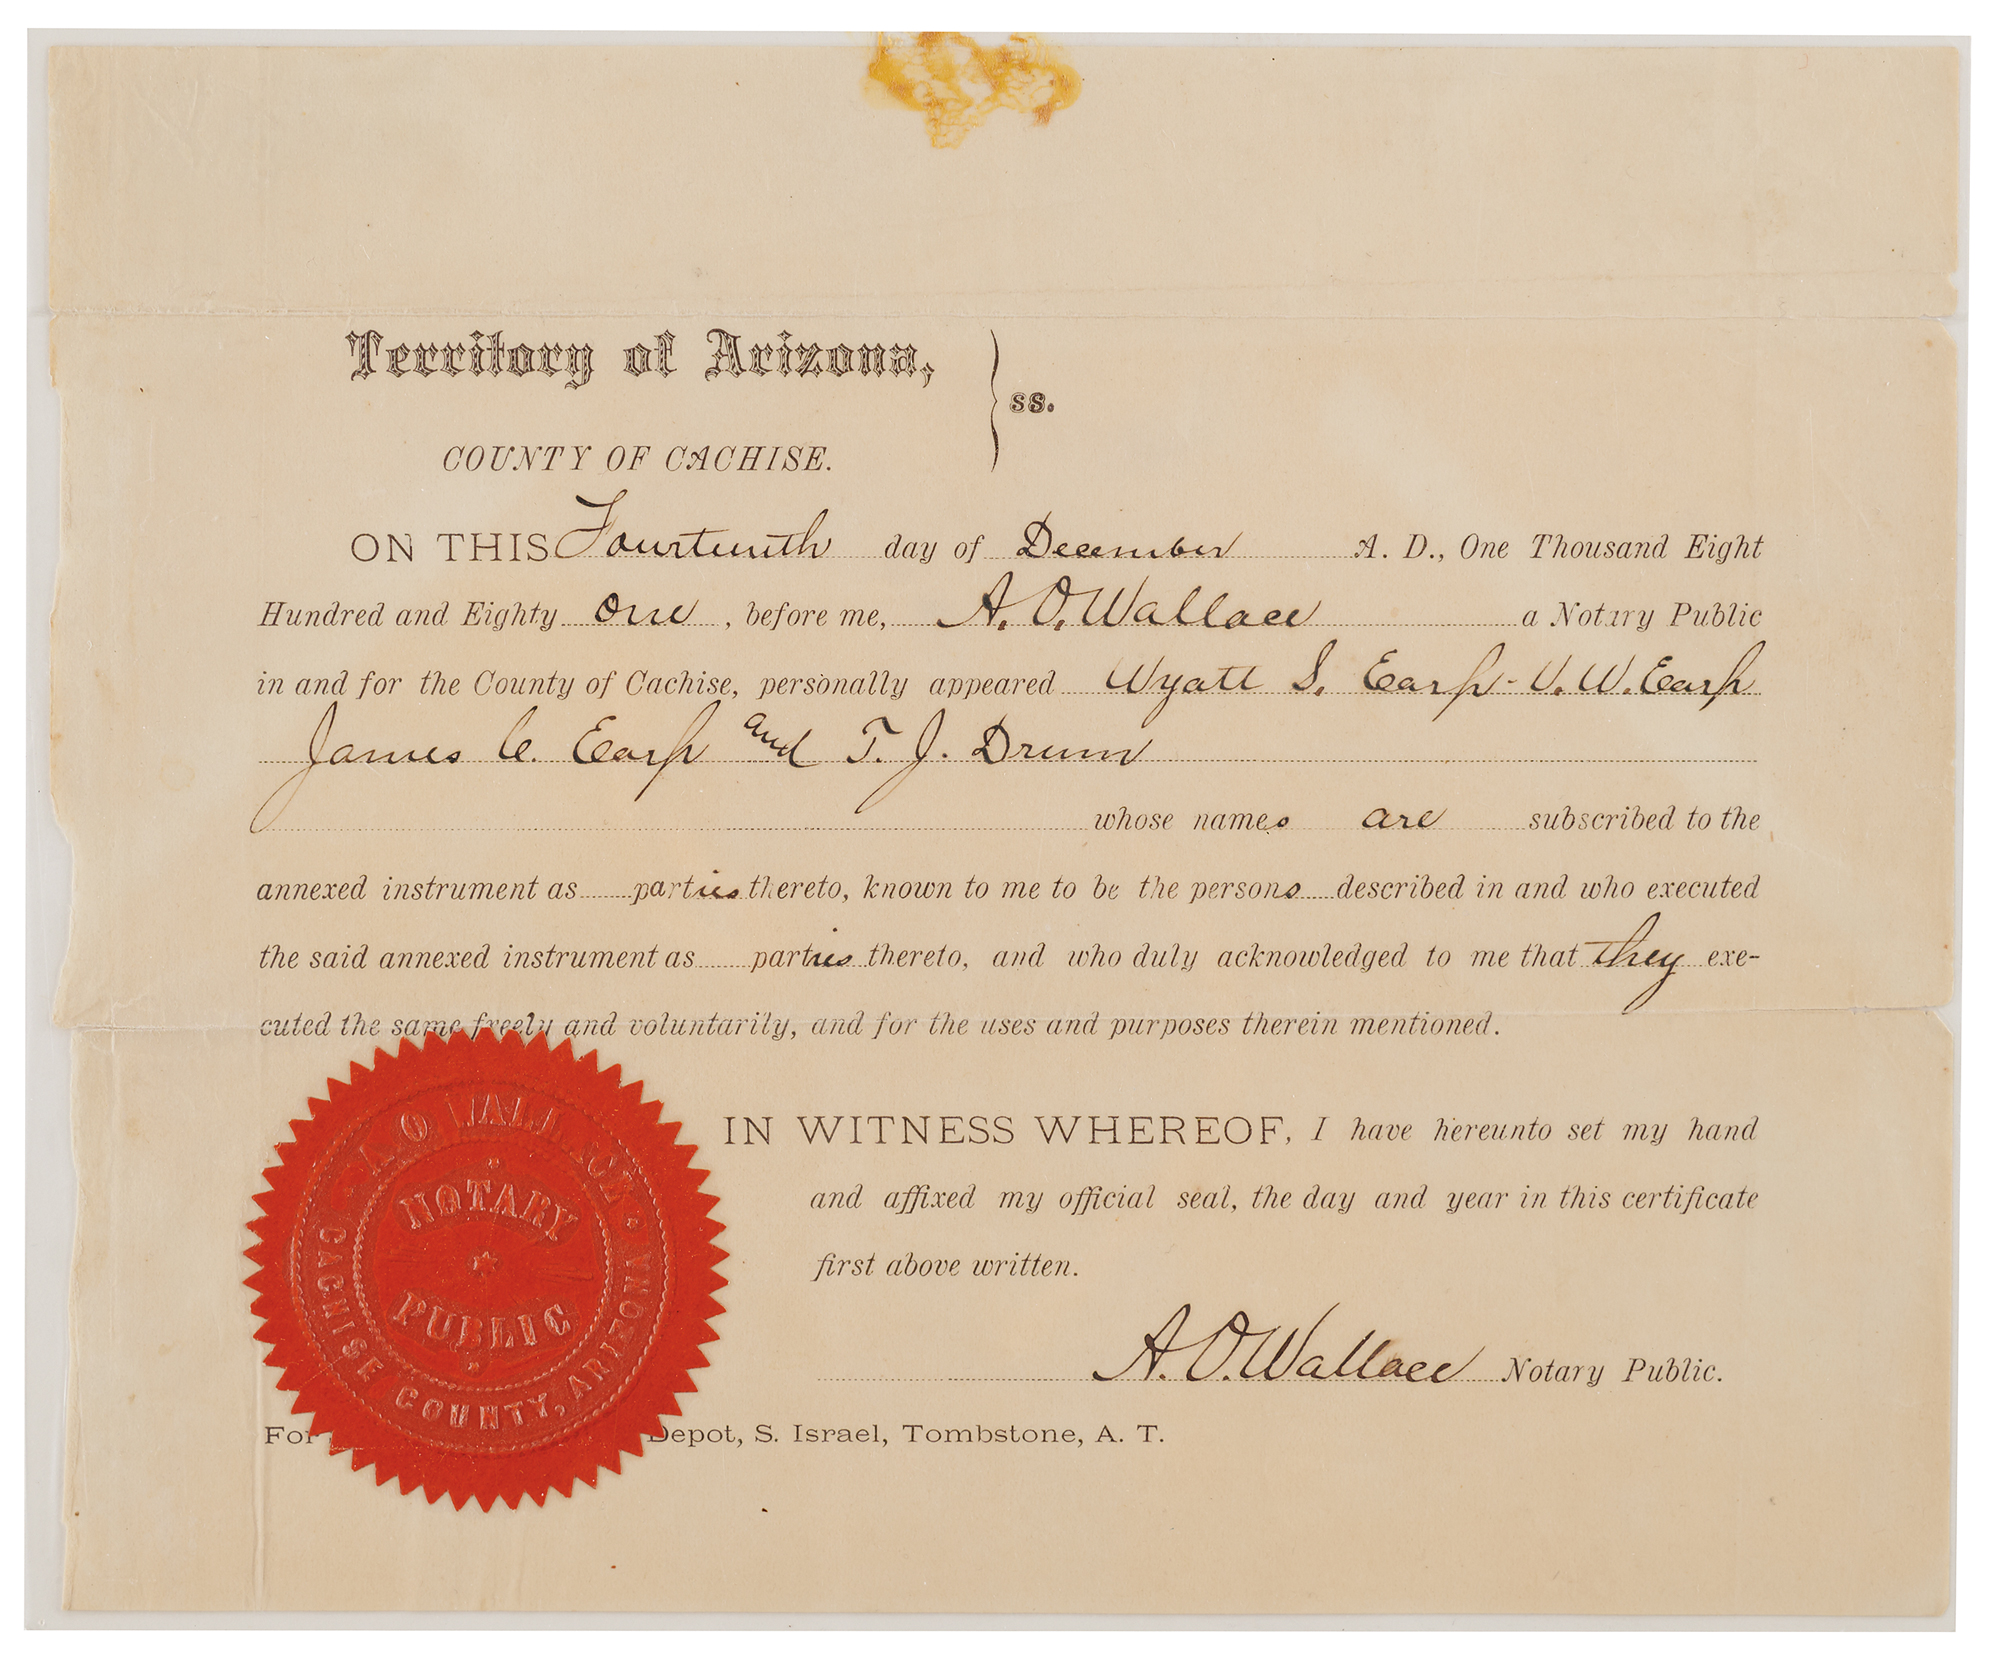 Territory of Arizona,
ss.
COUNTY OF CACHISE.
ON THIS Fourteenth day of December A. D., One Thousand Eight
Hundred and Eighty One, before me, A. O. Wallace a Notary Public
in and for the County of Cachise, personally appeared Wyatt S. Earp - V. W. Earp
James C. Earp and T. J. Drum
whose names are subscribed to the
annexed instrument as parties thereto, known to me to be the persons described in and who executed
the said annexed instrument as parties thereto, and who duly acknowledged to me that they exe-
cuted the same freely and voluntarily, and for the uses and purposes therein mentioned.
IN WITNESS WHEREOF, I have hereunto set my hand
and affixed my official seal, the day and year in this certificate
first above written.
A. O. Wallace Notary Public.
A. O. WALLACE
NOTARY
PUBLIC
CACHISE COUNTY, ARIZONA
For Depot, S. Israel, Tombstone, A. T.